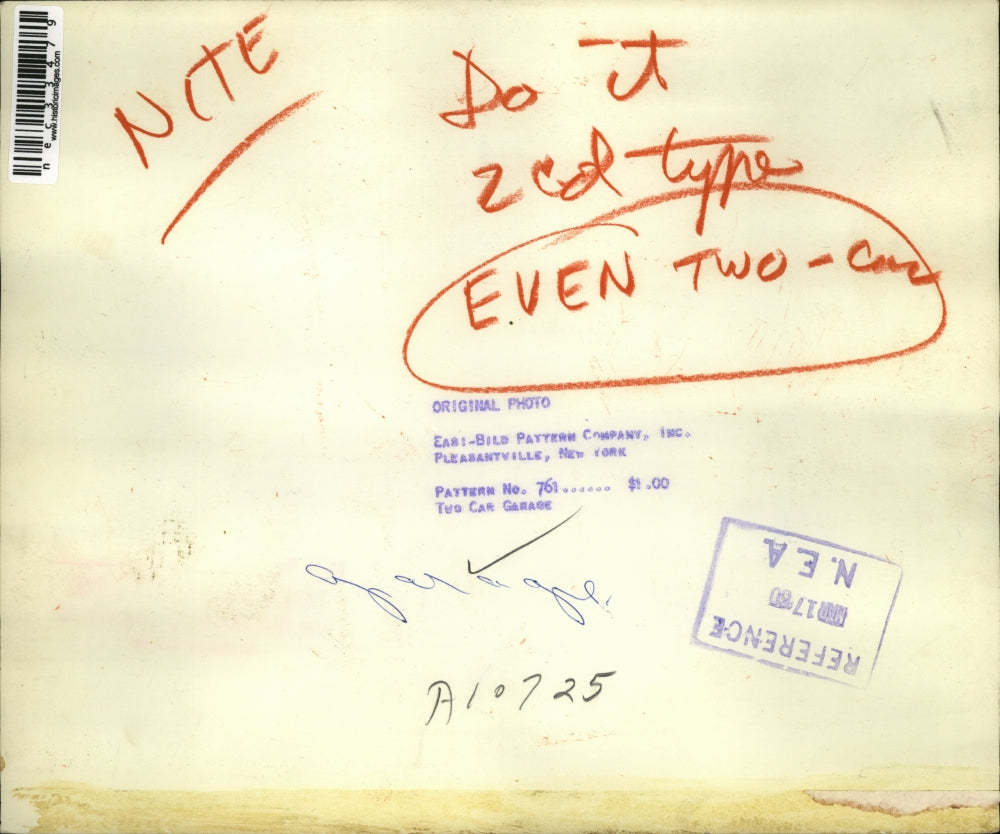 nec33479
www.historicimages.com
NITE
Do it
2 col type
EVEN TWO-Car
ORIGINAL PHOTO
EASI-BILD PATTERN COMPANY, INC.
PLEASANTVILLE, NEW YORK
PATTERN NO. 761...... $1.00
TWO CAR GARAGE
garage.
REFERENCE
MAR 17 '60
N.E.A.
A10725